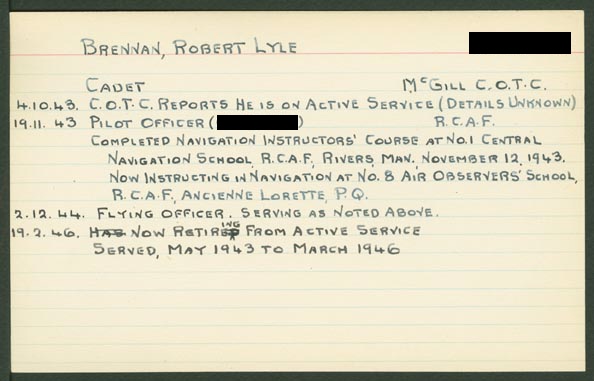 BRENNAN, ROBERT LYLE
CADET McGILL C.O.T.C.
4.10.43. C.O.T.C. REPORTS HE IS ON ACTIVE SERVICE (DETAILS UNKNOWN)
19.11.43 PILOT OFFICER ( ) R.C.A.F.
COMPLETED NAVIGATION INSTRUCTORS' COURSE AT NO.1 CENTRAL
NAVIGATION SCHOOL, R.C.A.F., RIVERS, MAN. NOVEMBER 12, 1943.
NOW INSTRUCTING IN NAVIGATION AT NO. 8 AIR OBSERVERS' SCHOOL,
R.C.A.F., ANCIENNE LORETTE, P.Q.
2.12.44. FLYING OFFICER. SERVING AS NOTED ABOVE.
19.2.46. HAS NOW RETIRING FROM ACTIVE SERVICE
SERVED, MAY 1943 TO MARCH 1946